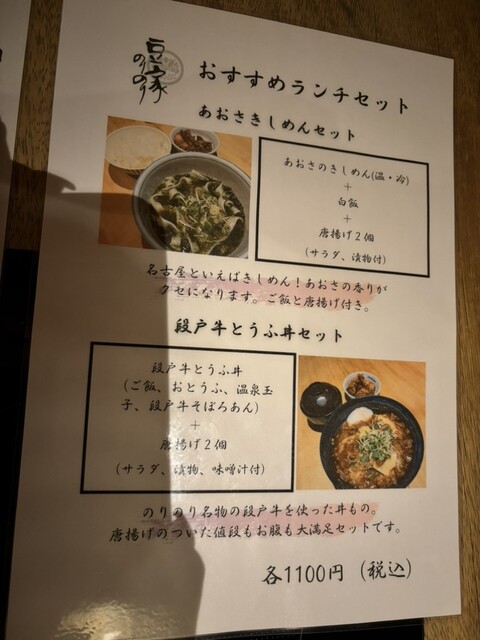 豆家
のりのり
おすすめランチセット
あおさきしめんセット
あおさのきしめん(温・冷)
+
白飯
+
唐揚げ2個
(サラダ、漬物付)
名古屋といえばきしめん!あおさの香りが
クセになります。ご飯と唐揚げ付き。
段戸牛とうふ丼セット
段戸牛とうふ丼
(ご飯、おとうふ、温泉玉
子、段戸牛そぼろあん)
+
唐揚げ2個
(サラダ、漬物、味噌汁付)
のりのり名物の段戸牛を使った丼もの。
唐揚げのついた値段もお腹も大満足セットです。
各1100円 (税込)